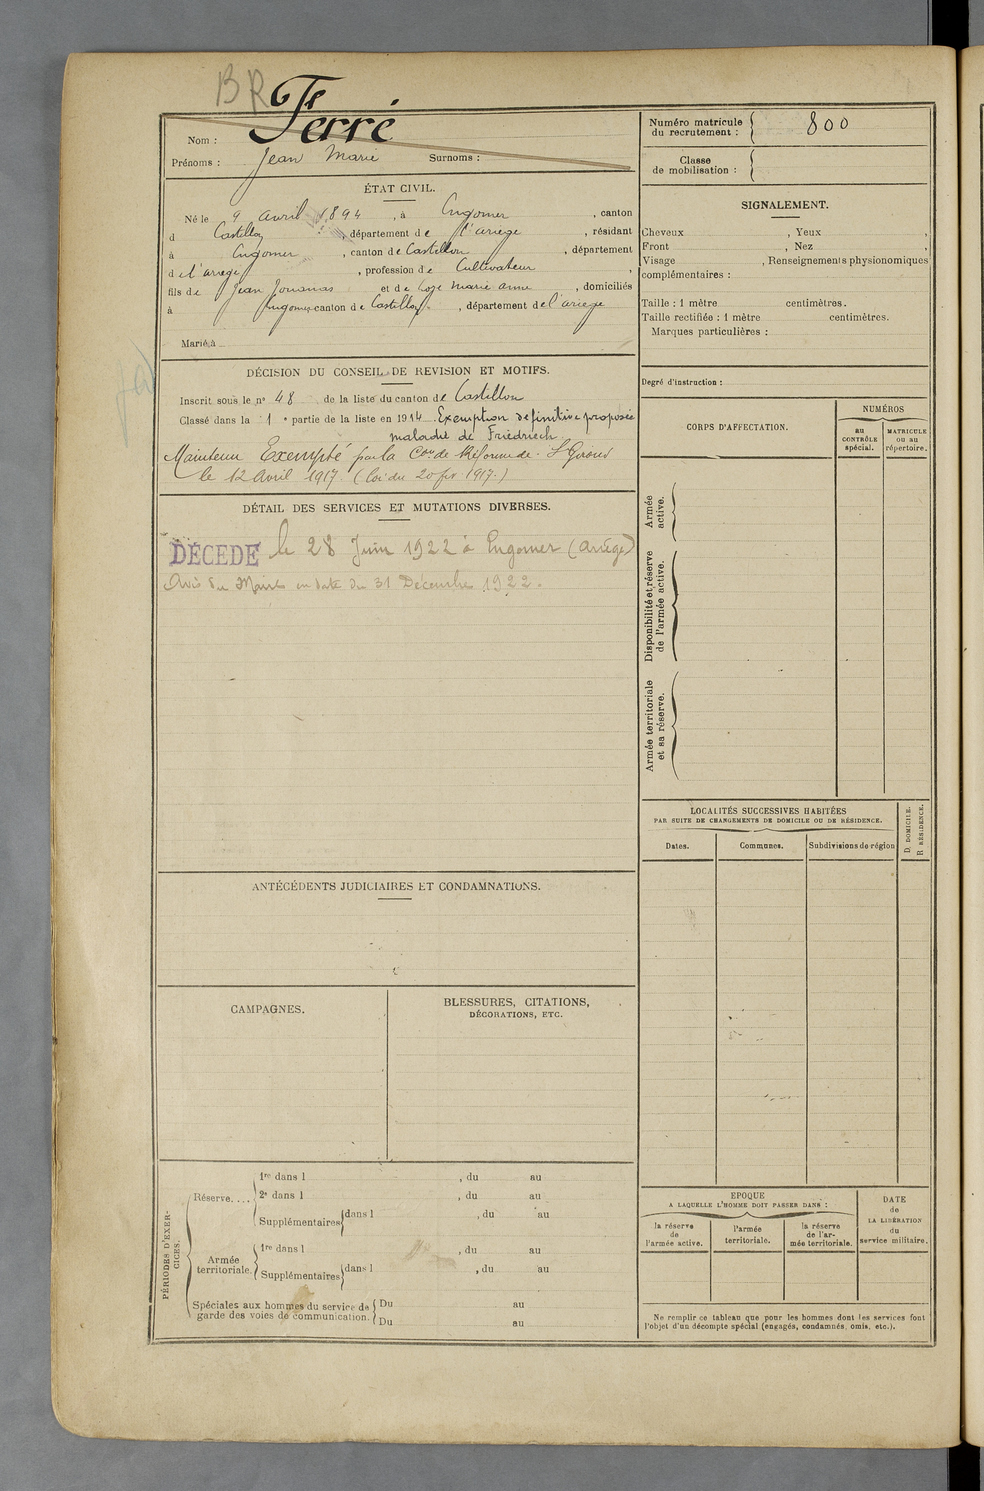 BR
Nom : Ferré
Prénoms : Jean Marie Surnoms :
ÉTAT CIVIL.
Né le 9 avril 1894, à Engomer, canton
d Castillon, département de l'ariège, résidant
à Engomer, canton de Castillon, département
de l'ariège, profession de Cultivateur,
fils de Jean et de Marie anne, domiciliés
à Engomer canton de Castillon, département de l'ariège
Marié à
DÉCISION DU CONSEIL DE REVISION ET MOTIFS.
Inscrit sous le nº 48 de la liste du canton de Castillon
Classé dans la 1e partie de la liste en 1914. Exemption définitive proposée
maladie de Friedriech
Maintenu Exempté par la Con de Réforme de St Girons
le 12 Avril 1917. (loi du 20 fer 1917.)
DÉTAIL DES SERVICES ET MUTATIONS DIVERSES.
DÉCÉDÉ le 28 Juin 1922 à Engomer (Ariège)
Avis du Maire en date du 31 Décembre 1922.
ANTÉCÉDENTS JUDICIAIRES ET CONDAMNATIONS.
CAMPAGNES.
BLESSURES, CITATIONS,
DÉCORATIONS, ETC.
PÉRIODES D'EXER-
CICES.
Réserve....
1re dans l , du au
2e dans l , du au
Supplémentaires dans l , du au
Armée
territoriale.
1re dans l , du au
Supplémentaires dans l , du au
Spéciales aux hommes du service de
garde des voies de communication.
Du au
Du au
Numéro matricule
du recrutement : 800
Classe
de mobilisation :
SIGNALEMENT.
Cheveux , Yeux ,
Front , Nez ,
Visage , Renseignements physionomiques
complémentaires :
Taille : 1 mètre centimètres.
Taille rectifiée : 1 mètre centimètres.
Marques particulières :
Degré d'instruction :
CORPS D'AFFECTATION.
NUMÉROS
au
CONTRÔLE
spécial.
MATRICULE
ou au
répertoire.
Armée
active.
Disponibilité et réserve
de l'armée active.
Armée territoriale
et sa réserve.
LOCALITÉS SUCCESSIVES HABITÉES
PAR SUITE DE CHANGEMENTS DE DOMICILE OU DE RÉSIDENCE.
D. DOMICILE.
R. RÉSIDENCE.
Dates. Communes. Subdivisions de région
EPOQUE
A LAQUELLE L'HOMME DOIT PASSER DANS :
la réserve
de
l'armée active.
l'armée
territoriale.
la réserve
de l'ar-
mée territoriale.
DATE
de
LA LIBÉRATION
du
service militaire.
Ne remplir ce tableau que pour les hommes dont les services font
l'objet d'un décompte spécial (engagés, condamnés, omis, etc.).